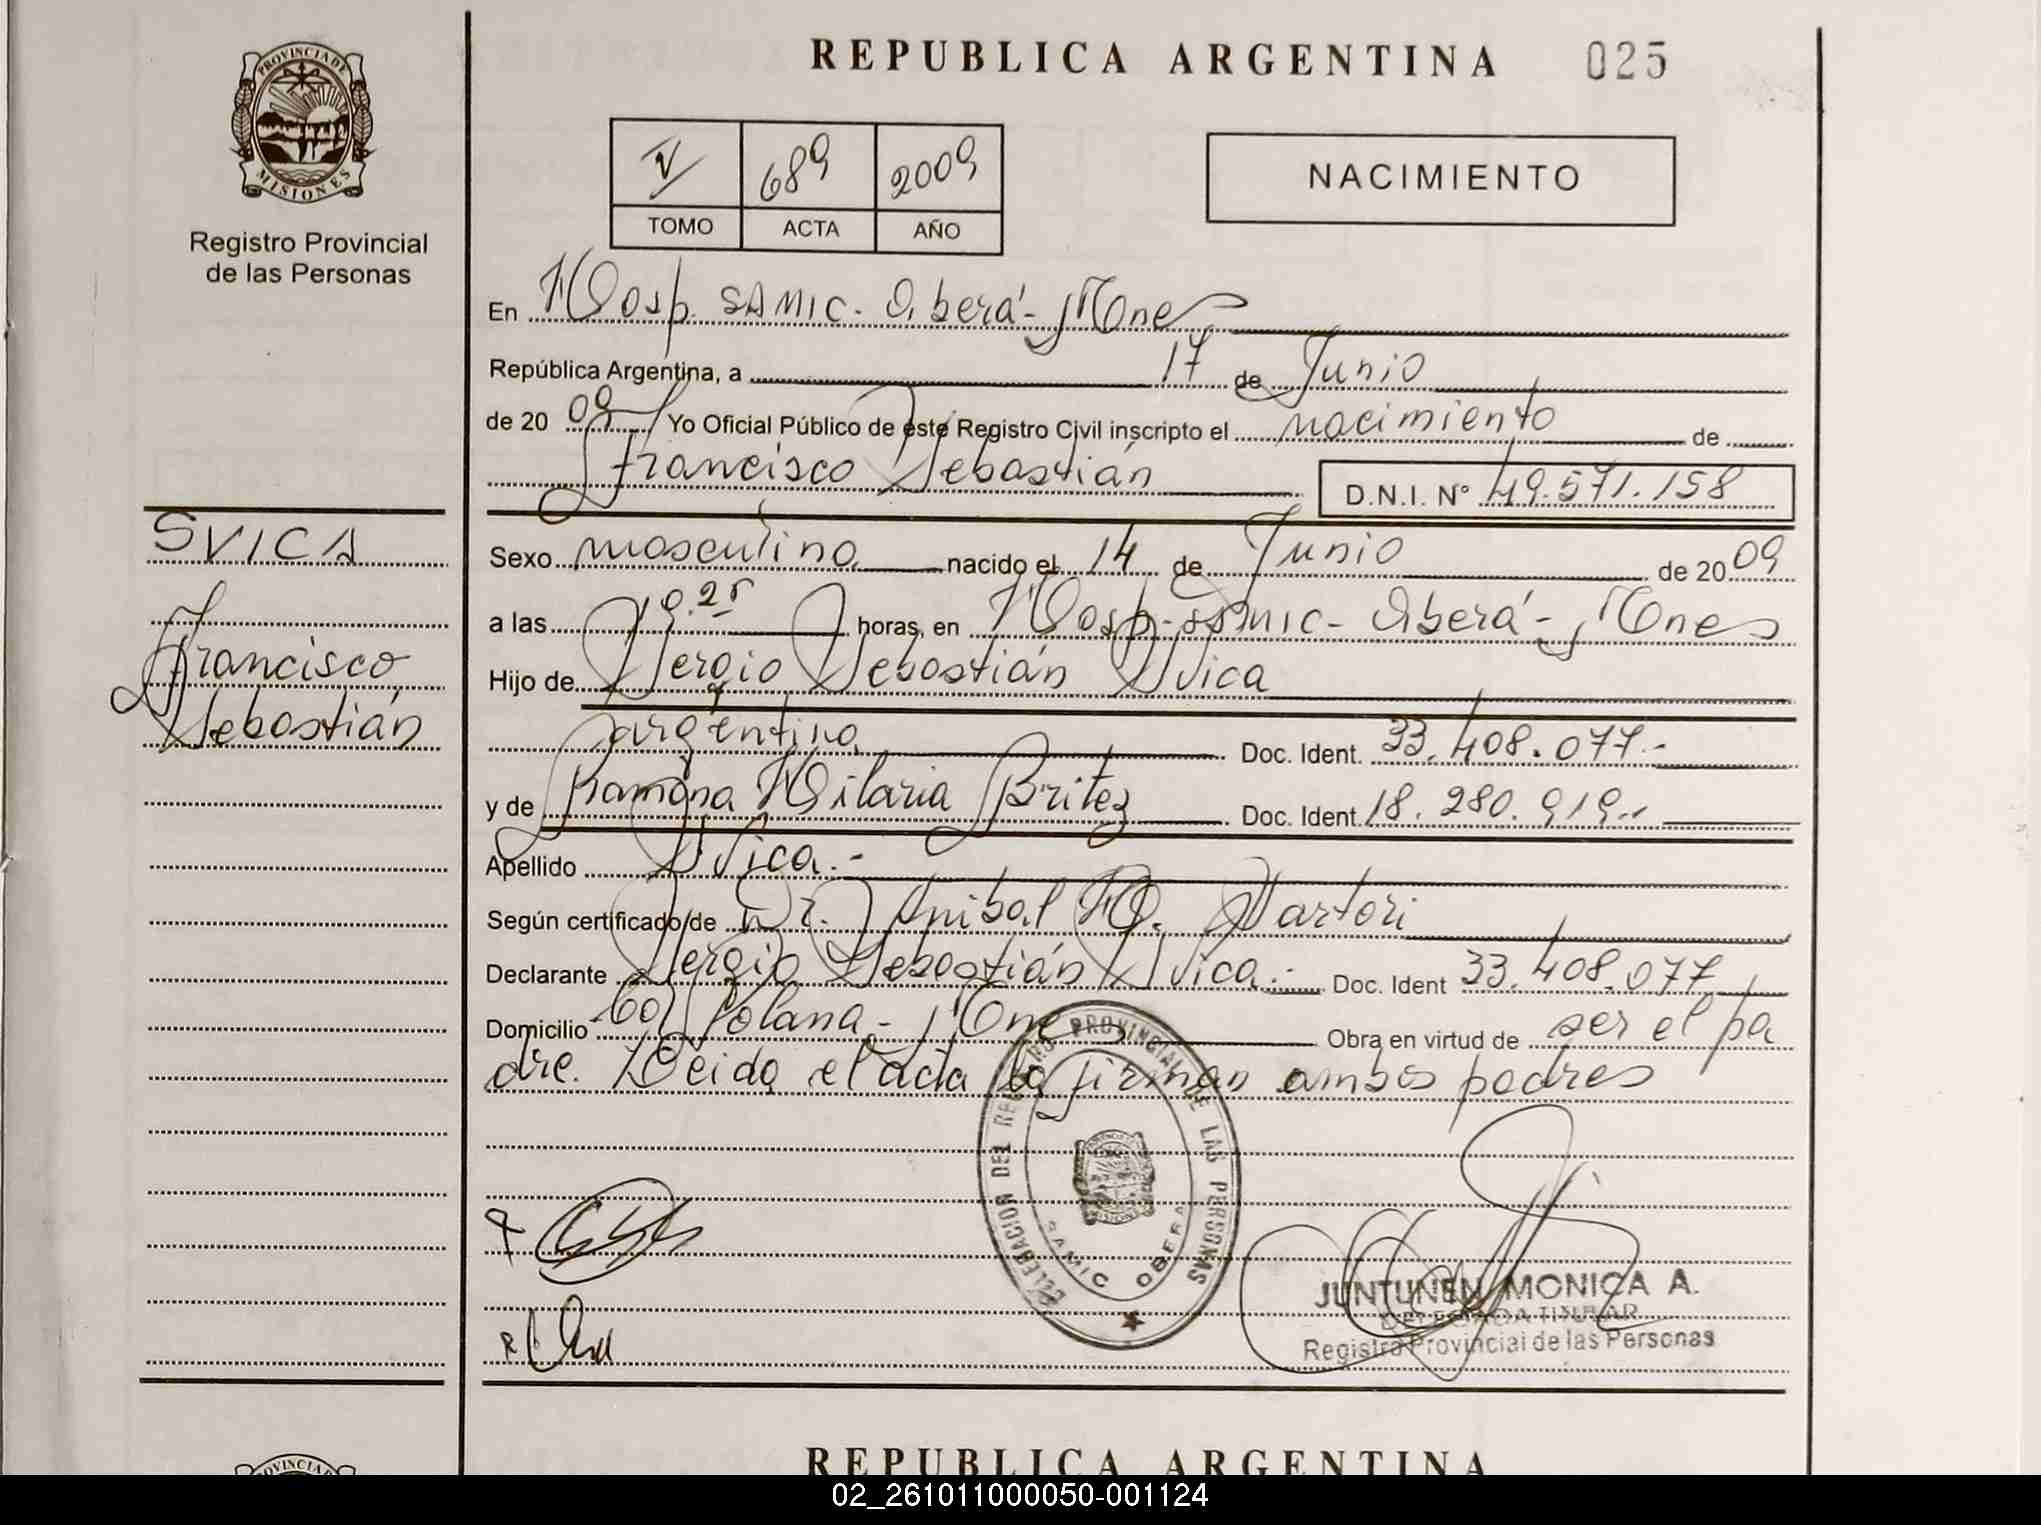 PROVINCIA DE
MISIONES
Registro Provincial
de las Personas
REPUBLICA ARGENTINA 025
V 689 2009
TOMO ACTA AÑO
NACIMIENTO
En Hosp. SAMIC. Oberá - Mnes
República Argentina, a 17 de Junio
de 20 09 Yo Oficial Público de este Registro Civil inscripto el nacimiento de
Francisco Sebastián D.N.I. N° 49.571.158
SVICA
Francisco
Sebastián
Sexo masculino nacido el 14 de Junio de 20 09
a las 19.25 horas, en Hosp. SAMIC - Oberá - Mnes
Hijo de Sergio Sebastián Svica
argentino Doc. Ident. 33.408.077.-
y de Ramona Hilaria Britez Doc. Ident. 18.280.919.-
Apellido Svica.-
Según certificado de Dr. Anibal H. Sartori
Declarante Sergio Sebastián Svica.- Doc. Ident 33.408.077
Domicilio Col Polana - Mne Obra en virtud de ser el pa
dre. Leida el acta la firman ambos padres
DEL REGISTRO PROVINCIAL DE LAS PERSONAS
SAMIC OBERA
JUNTUNEN MONICA A.
DELEGADA TITULAR
Registro Provincial de las Personas
PROVINCIA
REPUBLICA ARGENTINA
02_261011000050-001124